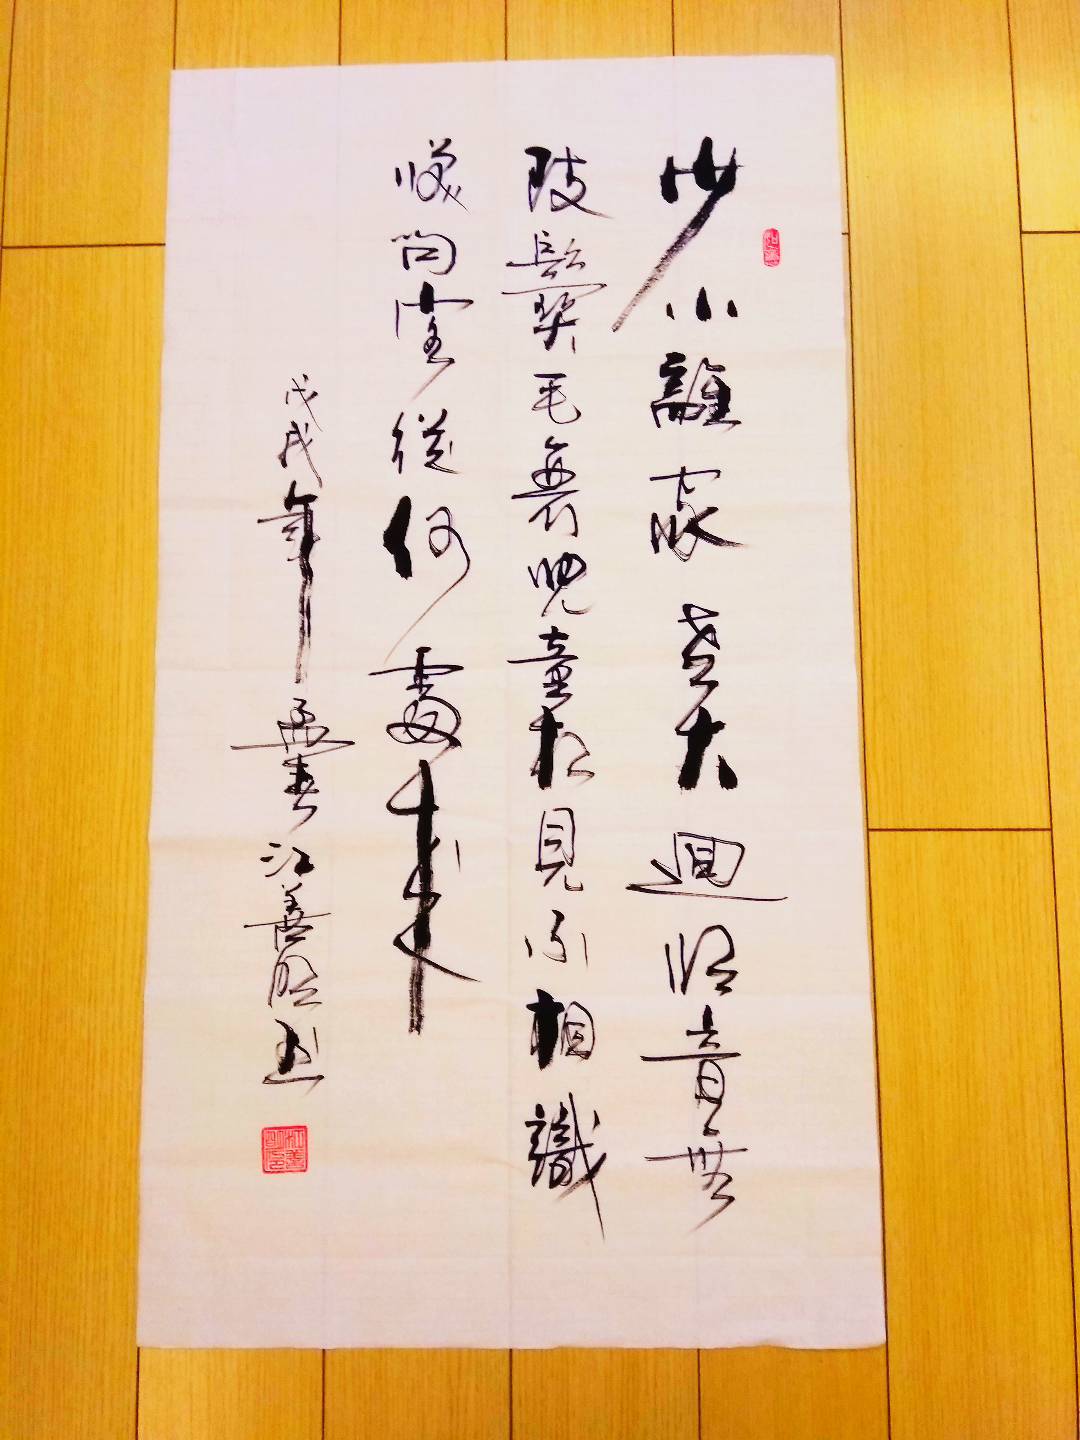 少小離家老大迴鄉音無
改鬢毛衰兒童相見不相識
咲問客從何處來
戊戌年孟春江善明书